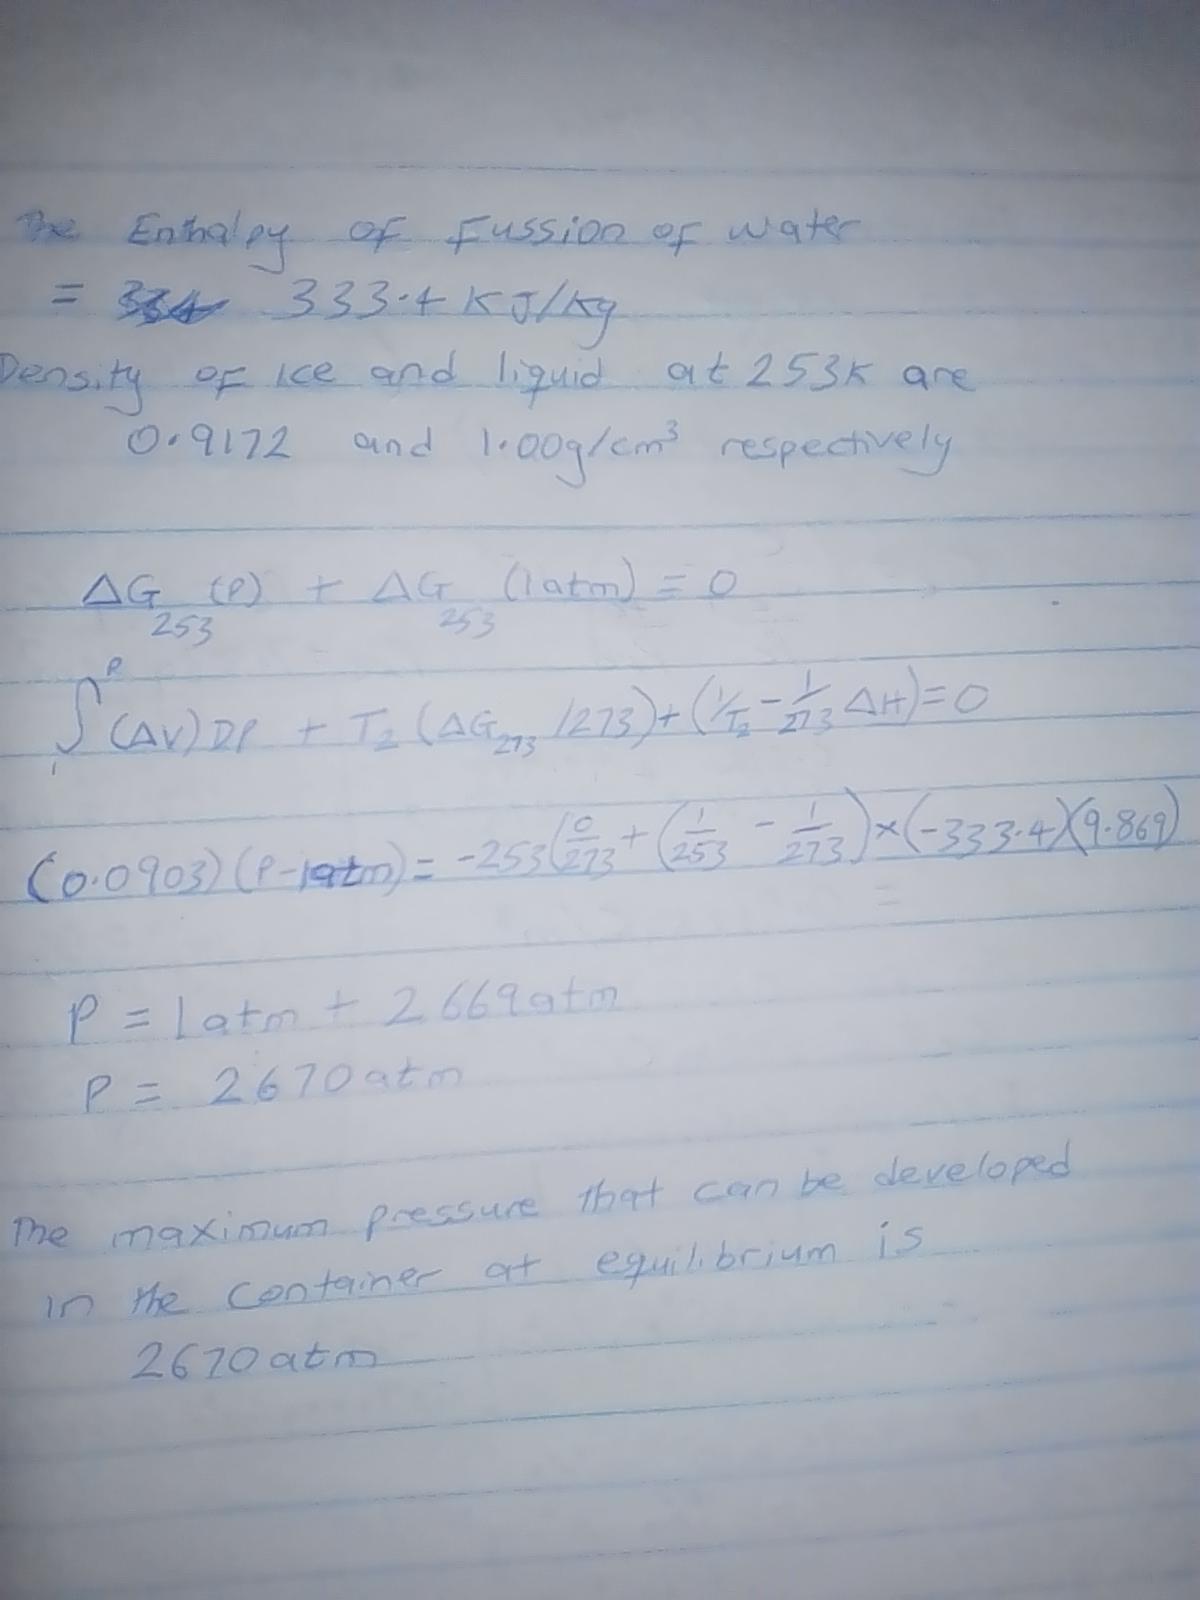 The Enthalpy of Fussion of water
= 333.4 KJ/Kg
Density of Ice and liquid at 253K are
0.9172 and 1.00g/cm³ respectively
ΔG₂₅₃ (P) + ΔG₂₅₃ (1atm) = 0
∫₁ᴾ (ΔV) DP + T₂ (ΔG₂₇₃ /273) + (1/T₂ - 1/273 ΔH) = 0
(0.0903) (P-1atm) = -253(0/273 + (1/253 - 1/273) × (-333.4)(9.869)
=
P = 1atm + 2669atm
P = 2670atm
The maximum pressure that can be developed
in the container at equilibrium is
2670atm